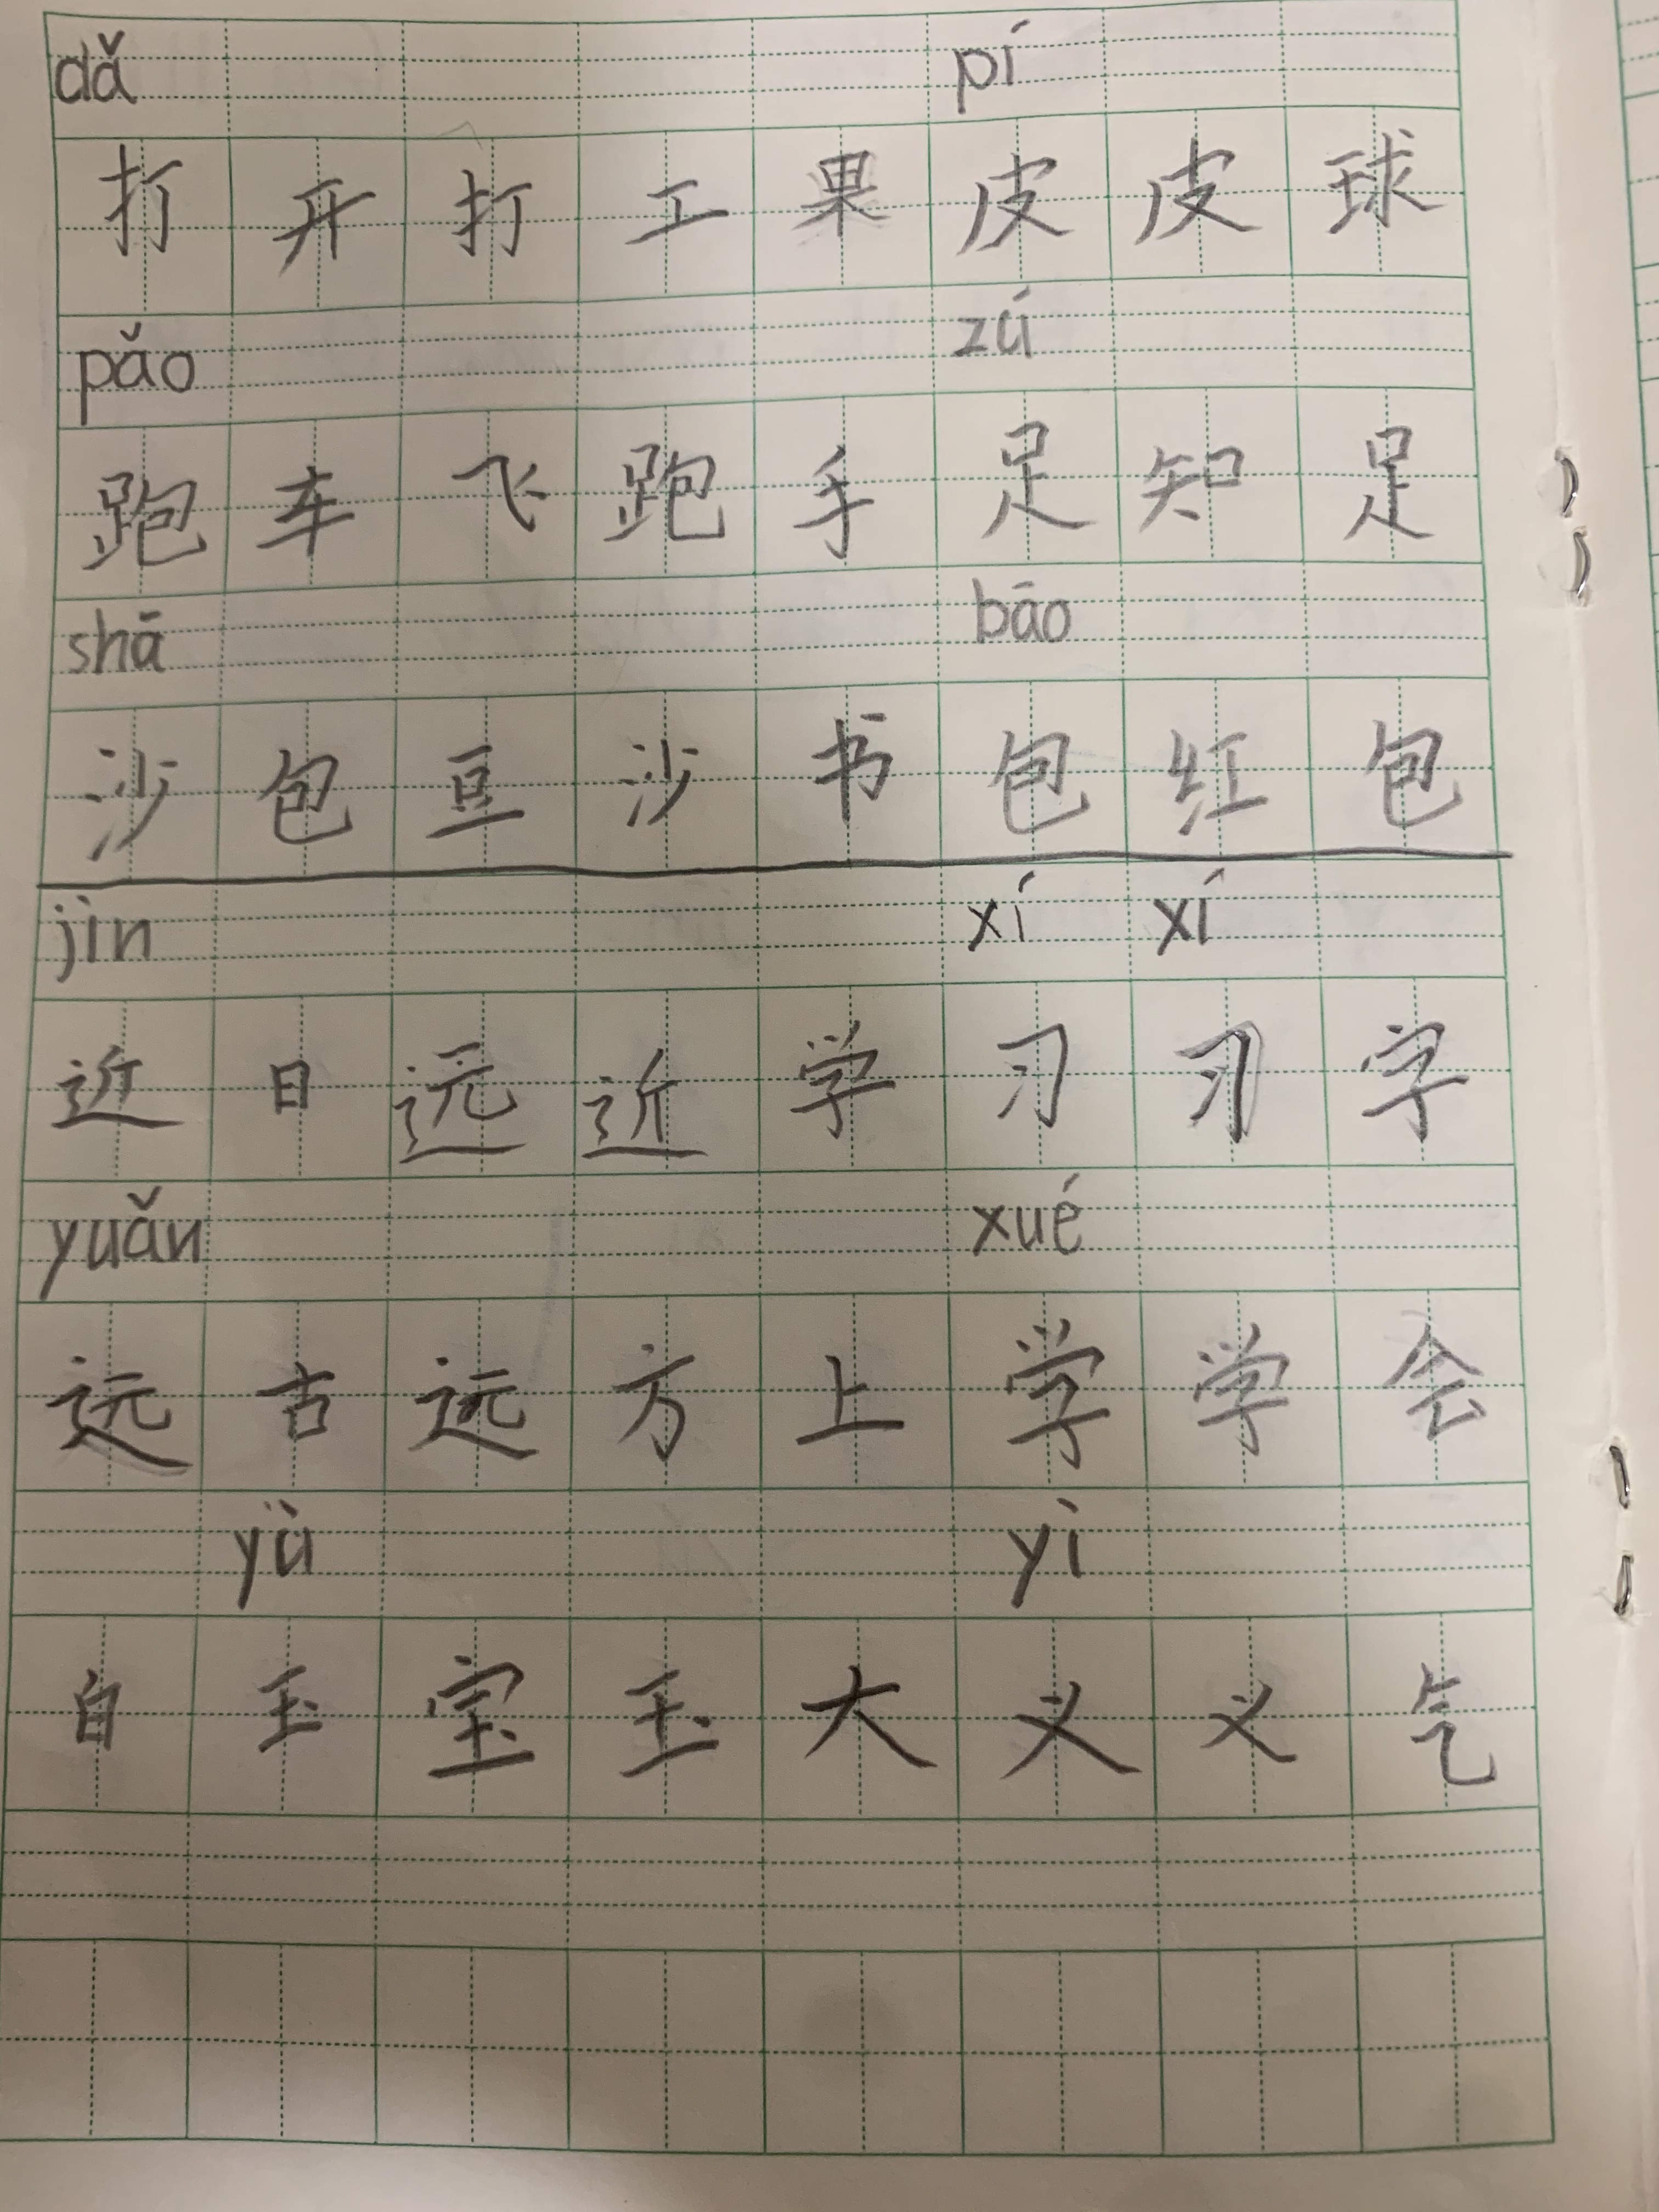 dǎ pí
打开打工果皮皮球
pǎo zú
跑车飞跑手足知足
shā bāo
沙包豆沙书包红包
jìn xí xí
近日远近学习习字
yuǎn xué
远古远方上学学会
yù yì
白玉宝玉大义义气